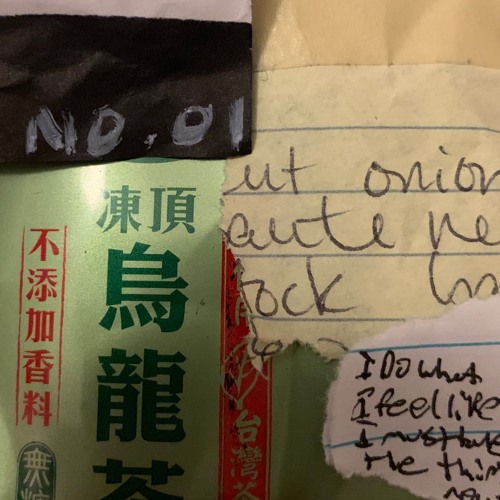 NO. 01
凍頂
烏龍茶
不添加香料
無
台灣茶
ut onion
aute
ock
I Do what
I feel like
I must have
the thin